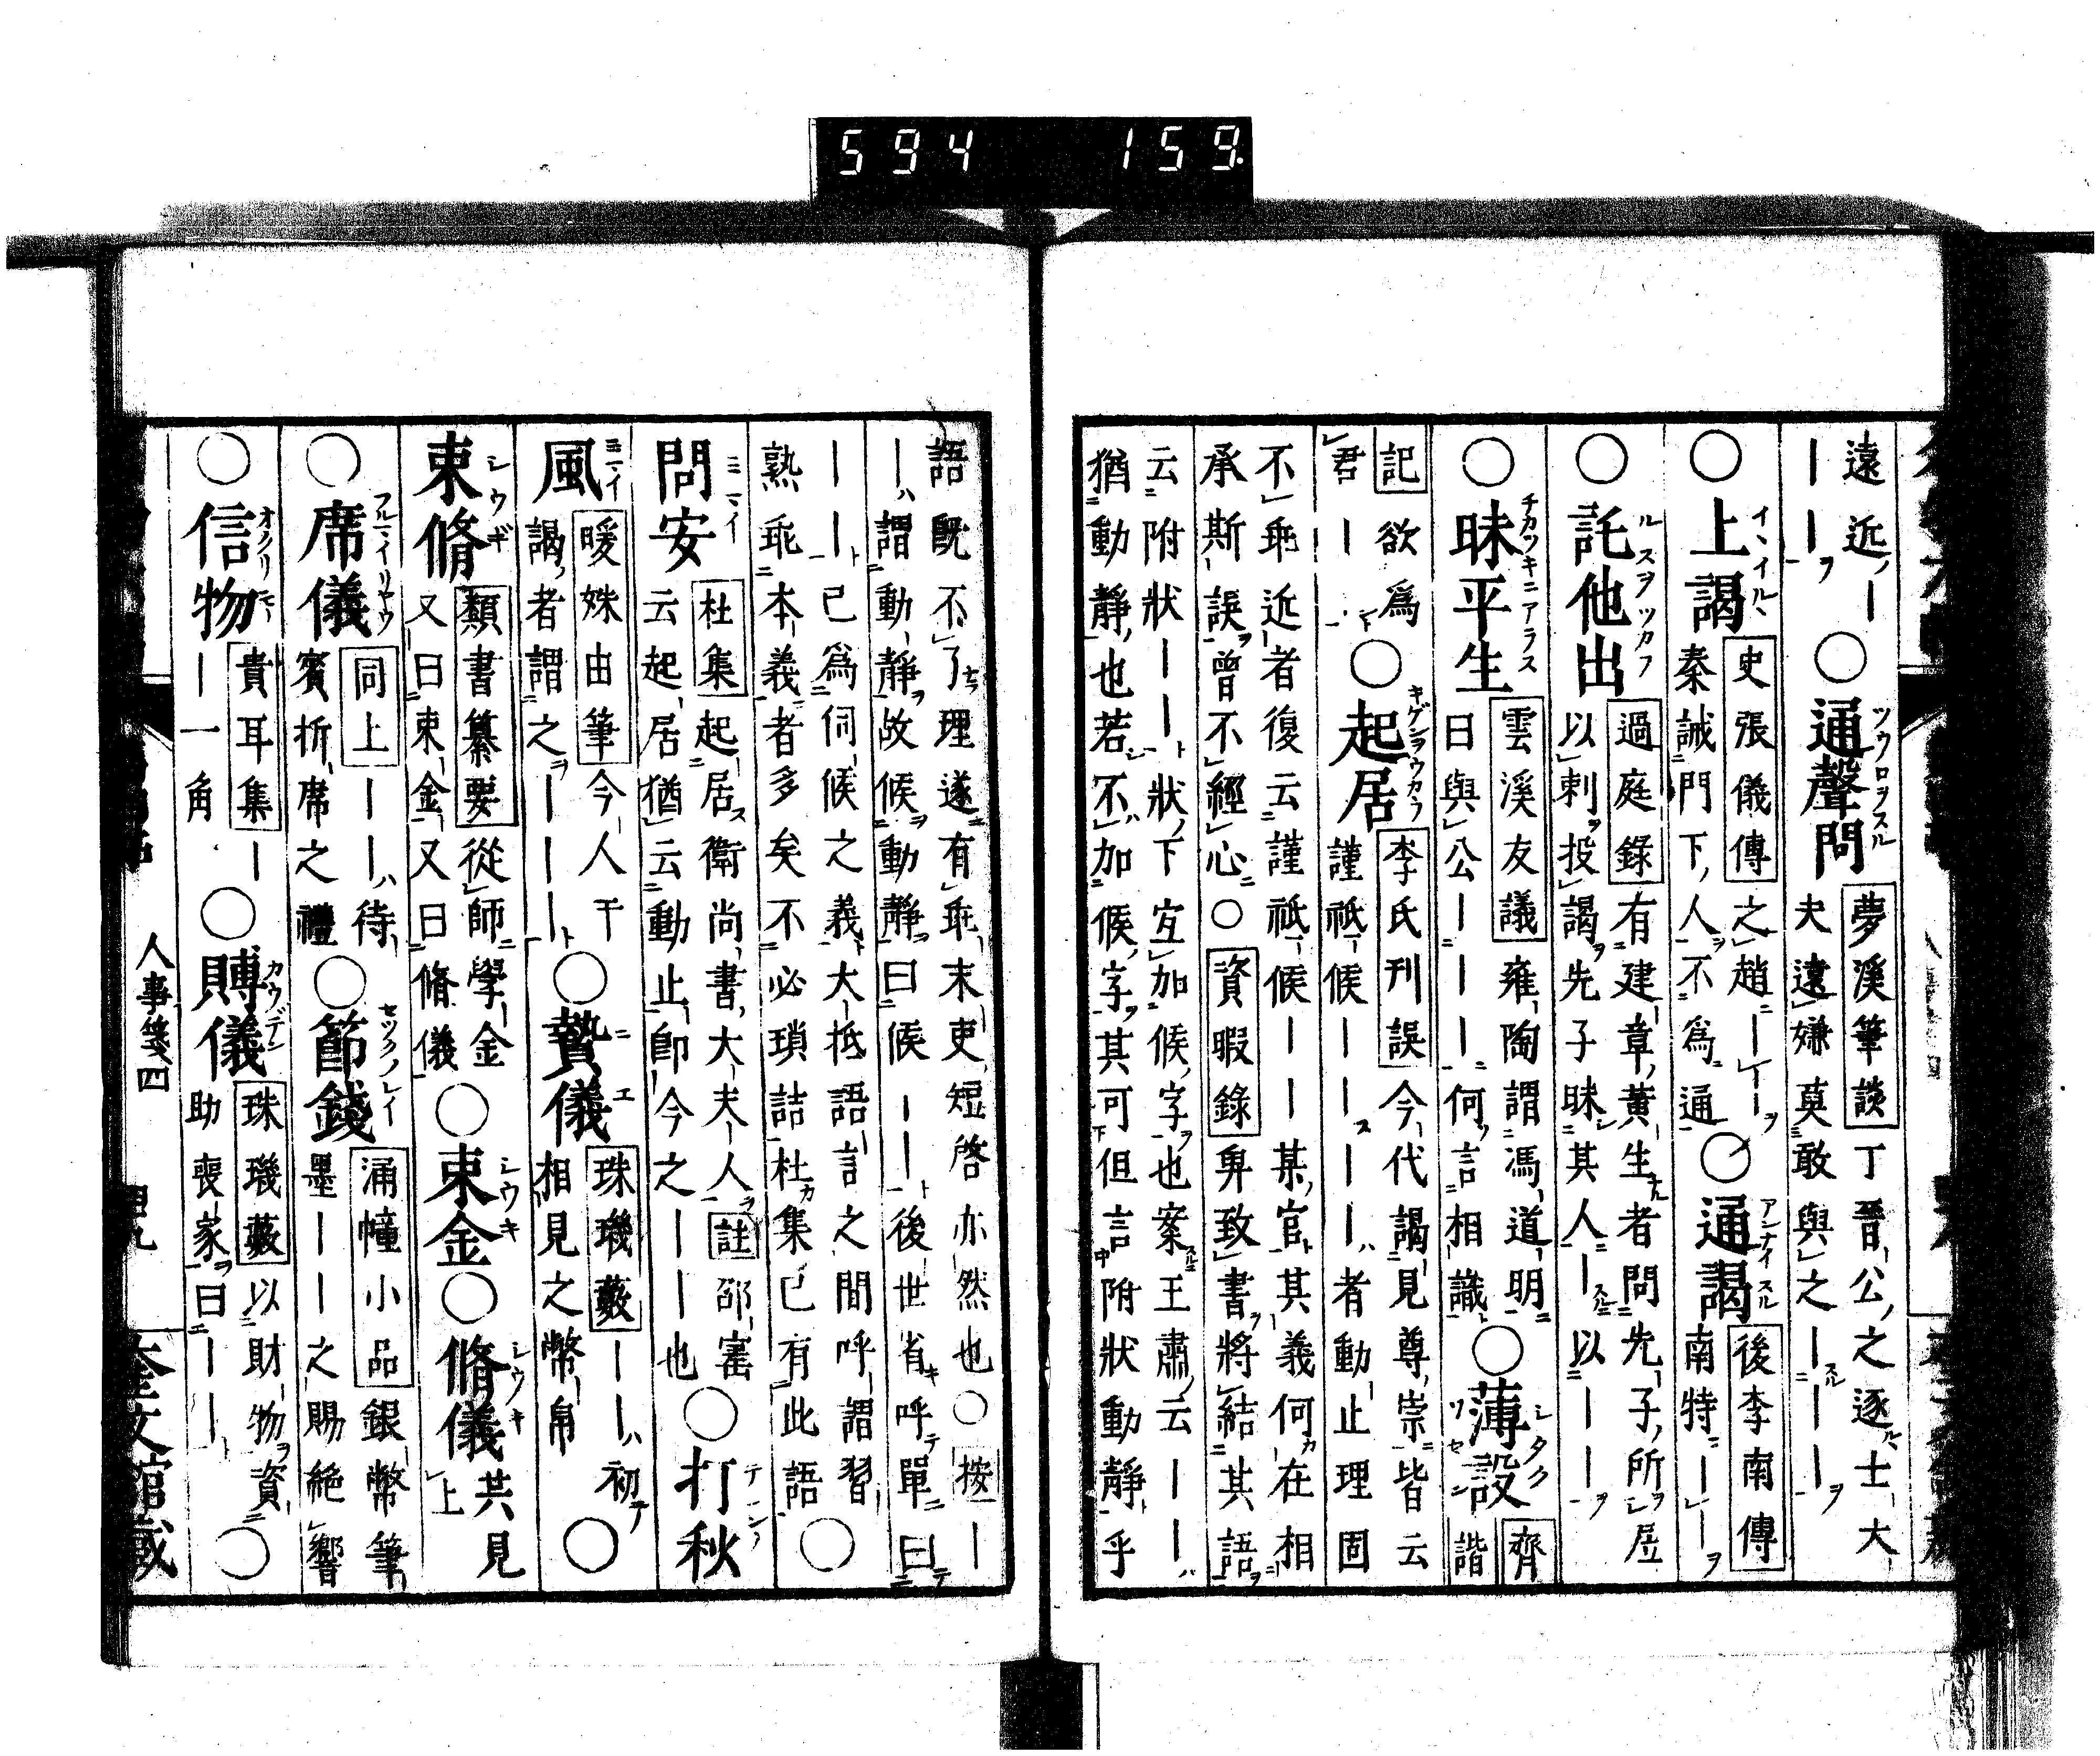 594 159
遠近—
——
○通聲問
夢溪筆談丁晉公之逐士大
夫遠嫌莫敢與之———
○上謁
史張儀傳之趙——
秦誡門下人不爲通
○通謁
後李南傳
南特——
○託他出
過庭錄有建章黃生者問先子所居
以刺投謁先子昧其人—以———
○昧平生
雲溪友議雍陶謂馮道明
曰與公———何言相識
○薄設
齊
諧
記欲爲
君——
○起居
李氏刊誤今代謁見尊崇皆云
謹祗候————者動止理固
不乖近者復云謹祗候——某官其義何在相
承斯誤曾不經心○資暇錄舁致書將結其語
云附狀——狀下宜加候字也案王肅云——
猶動靜也若不加候字其可但言附狀動靜乎
語既不了理遂有乖末吏短啓亦然也○按—
—謂動靜故候動靜曰候——後世省呼單曰
——已爲伺候之義大抵語言之間呼謂習
熟乖本義者多矣不必瑣詰杜集已有此語
○
問安
杜集起居衛尚書大夫人註邵寚
云起居猶云動止卽今之——也
○打秋
風
暖姝由筆今人干
謁者謂之———
○贄儀
珠璣藪——初
相見之幣帛
○
束脩
類書纂要從師學金
又曰束金又曰脩儀
○束金○脩儀
共見
上
○席儀
同上——待
賓折席之禮
○節錢
涌幢小品銀幣筆
墨——之賜絶響
○信物
貴耳集—
—一角
○賻儀
珠璣藪以財物資
助喪家曰——
○
人事箋四
四九
奎文館藏